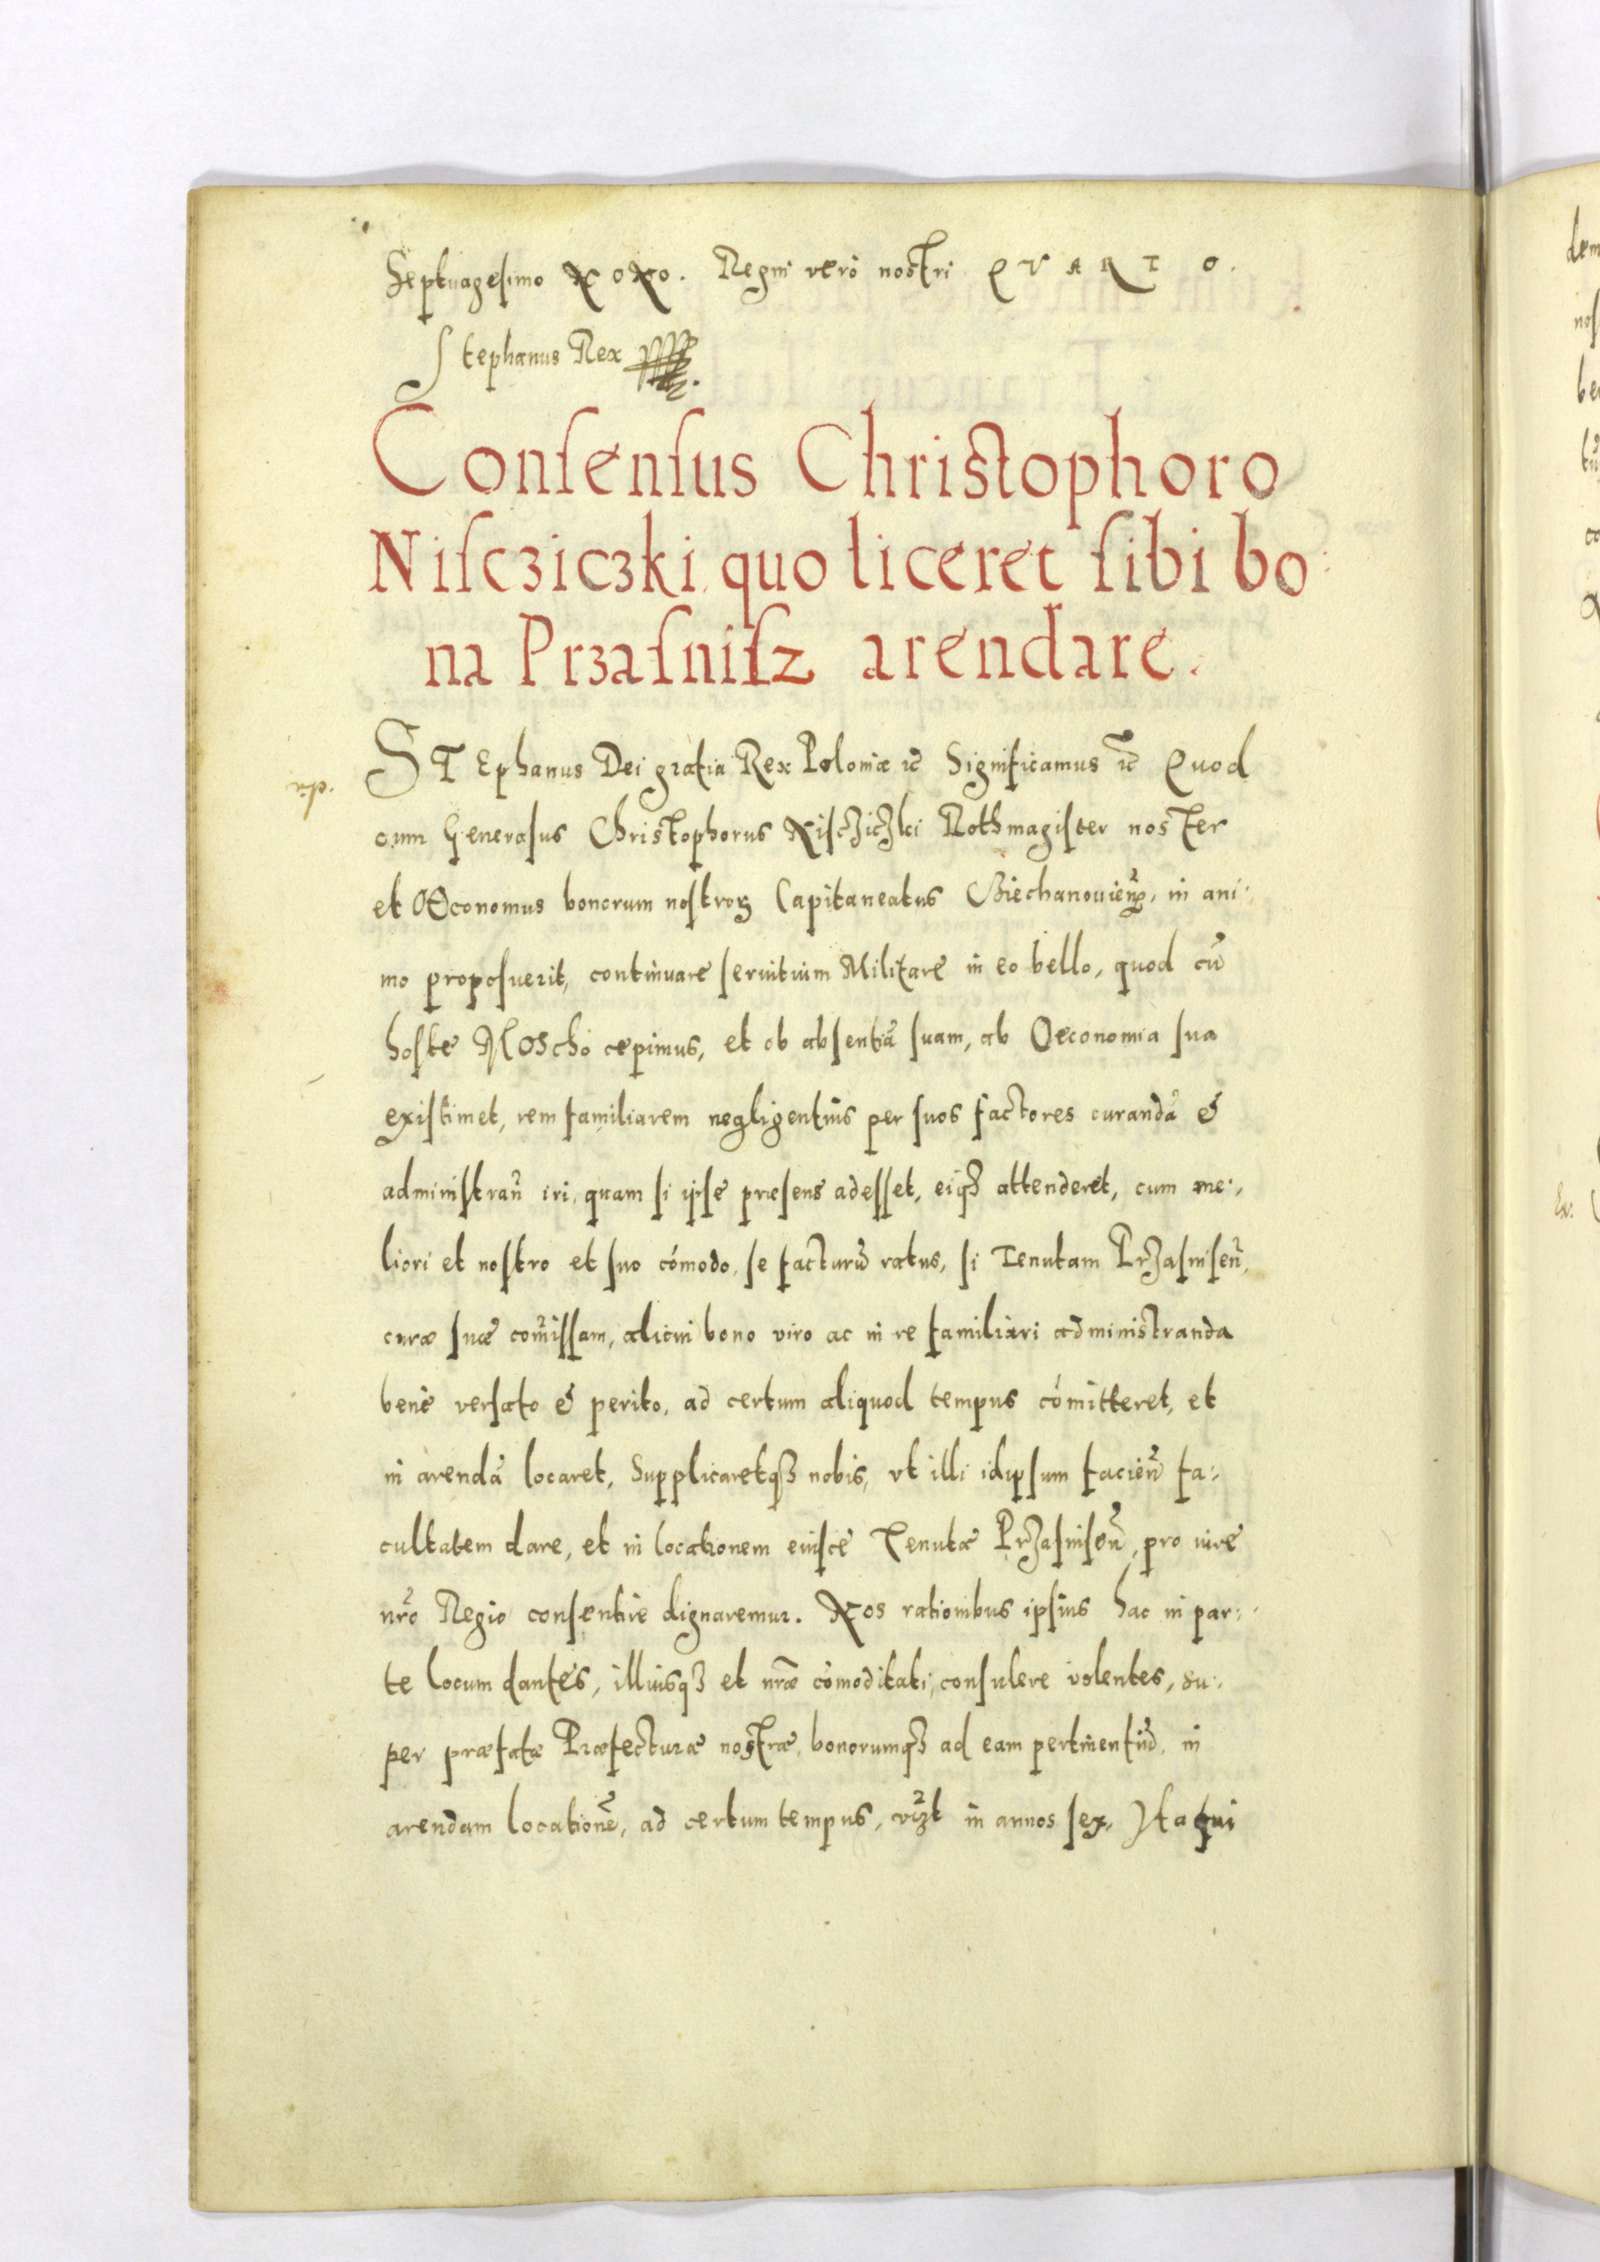 Septuagesimo NONO. Regni vero nostri QVARTO.
Stephanus Rex
Consensus Christophoro
Niscziczki quo liceret sibi bo
na Przasnisz arendare.
STEphanus Dei gratia Rex Poloniæ ꝛc̃ Significamus ꝛc̃ Quod
cum Generosus Christophorus Niscziczki Rothmagister noster
et OEconomus bonorum nostroꝝ Capitaneatus Ciechanovieñ, in ani:
mo proposuerit, continuare servitium Militare in eo bello, quod cũ
hoste Moscho cepimus, et ob absentiã suam, ab Oeconomia sua
existimet, rem familiarem negligentius per suos factores curandã &
administrañ iri, quam si ipse præsens adesset, eiqȝ attenderet, cum me:
liori et nostro et suo cõmodo, se facturũ ratus, si Tenutam Przasniseñ,
curæ suæ com̃issam, alicui bono viro ac in re familiari administranda
bene versato & perito, ad certum aliquod tempus cõmitteret, et
in arendã locaret, Supplicaretqȝ nobis, vt illi idipsum facieñ fa:
cultatem dare, et in locationem eiusce Tenutæ Przasniseñ, pro iure
nr̃o Regio consentire dignaremur. Nos rationibus ipsius hac in par:
te locum dantes, illiusqȝ et nr̃æ cõmoditati, consulere volentes, su:
per præfatæ Præfecturæ nostræ, bonorumqȝ ad eam pertinentiũ, in
arendam locationẽ, ad certum tempus, vizt in annos sex, Ita qui